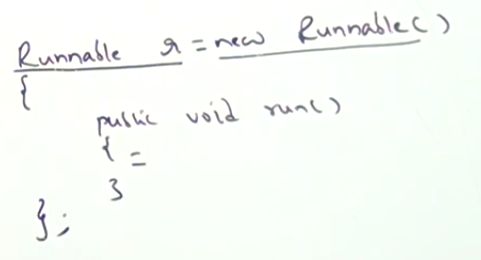 Runnable r = new Runnable()
{
public void run()
{ =
}
};